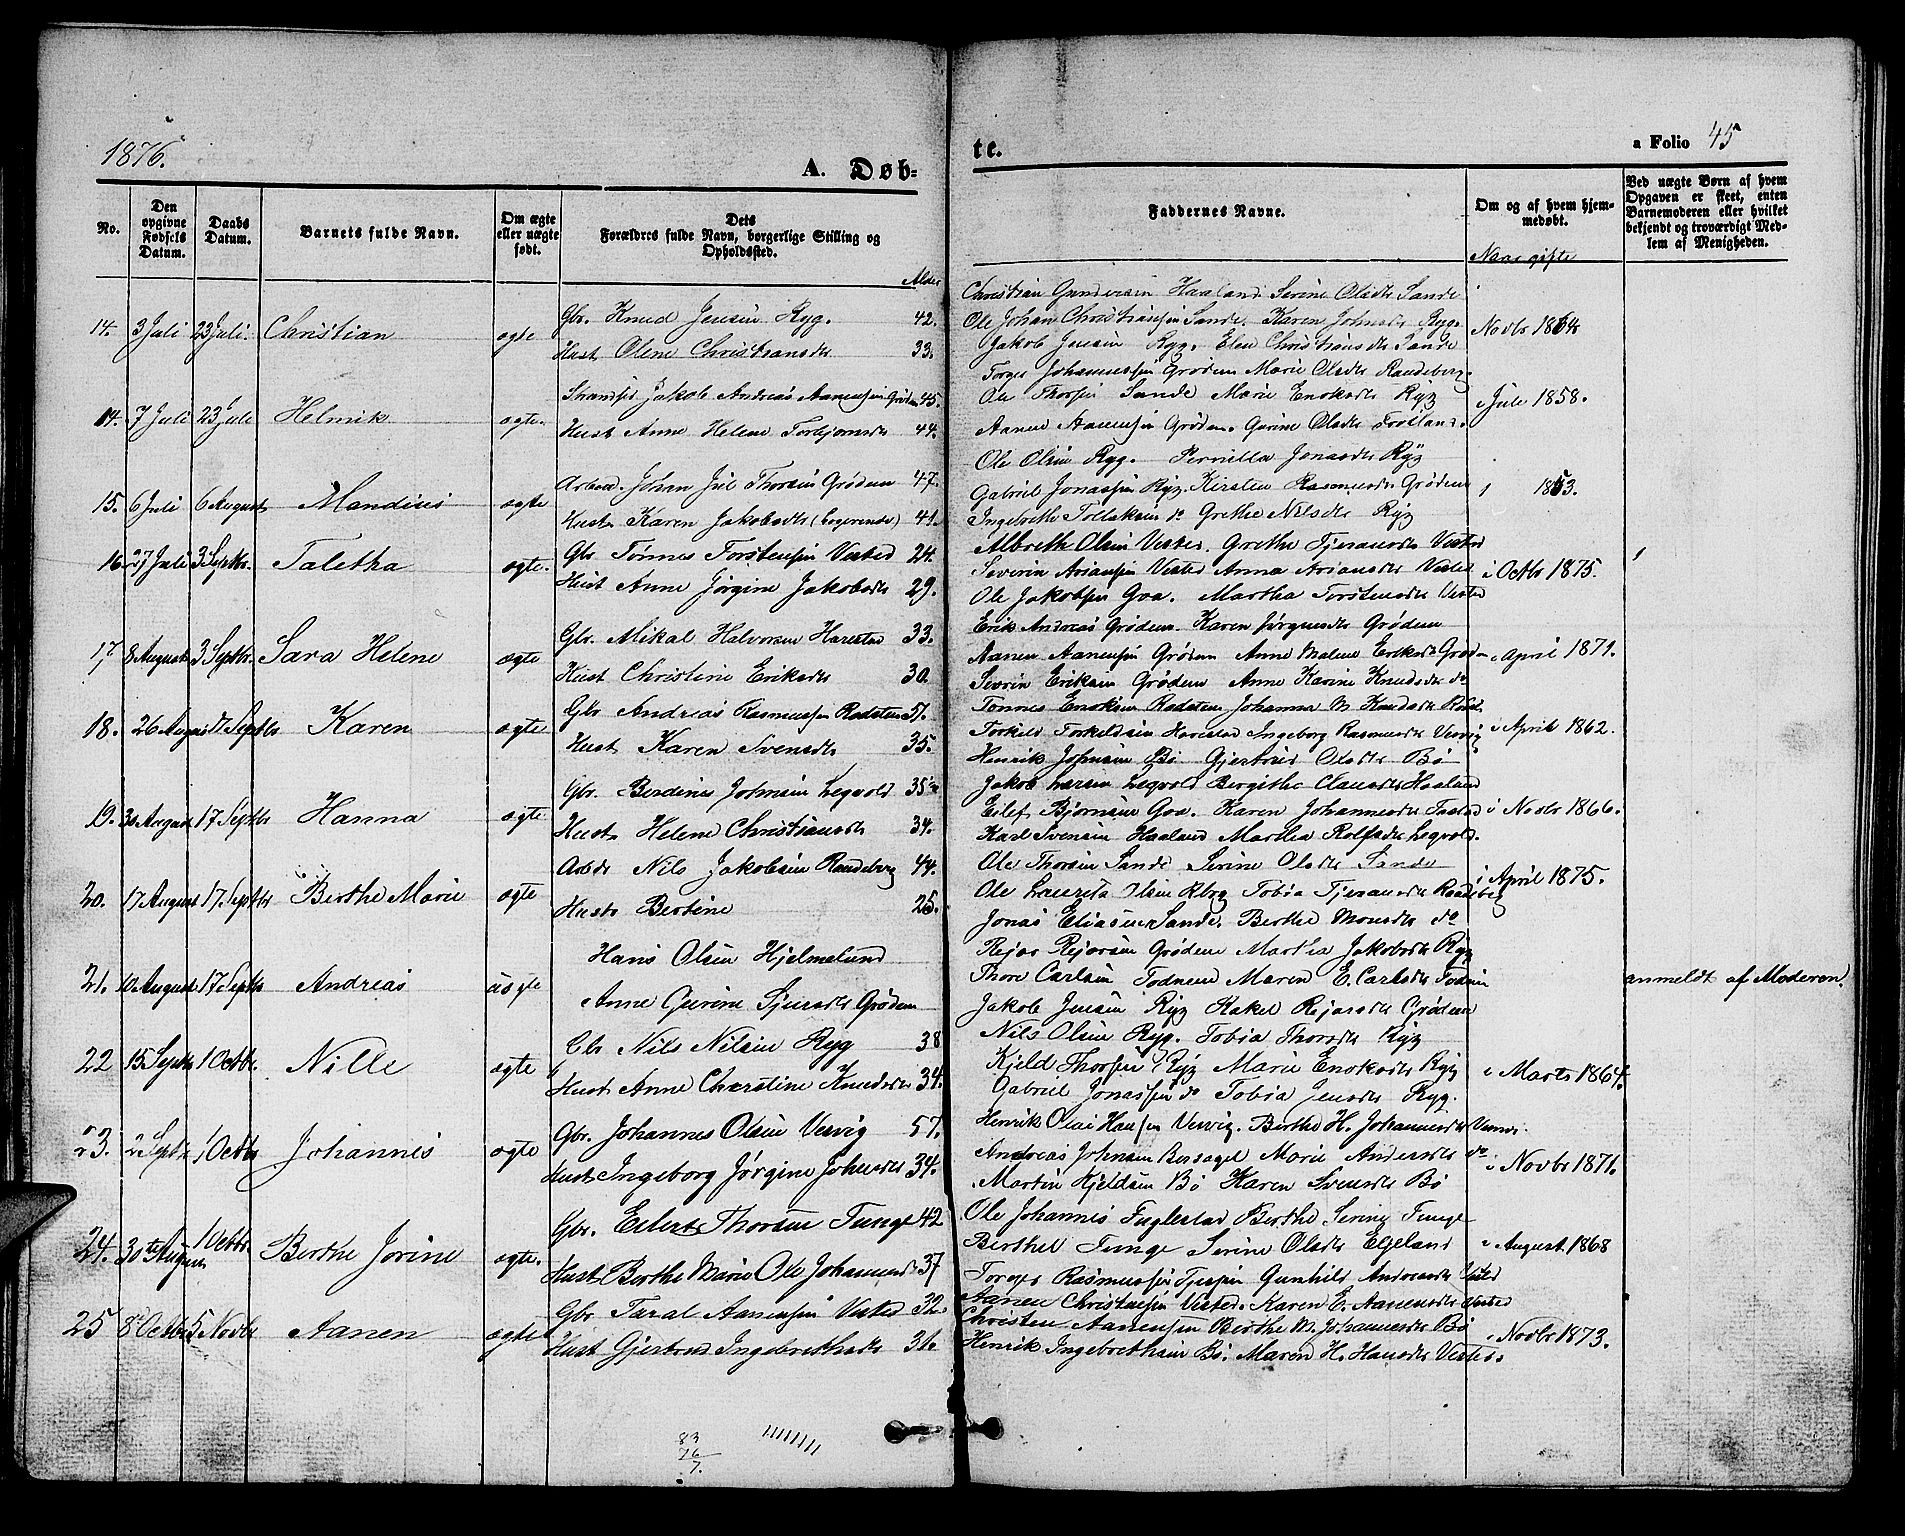 1876.
A. Døb-
te.
a Folio 45
No.
Den opgivne Fødsels Datum.
Daabs Datum.
Barnets fulde Navn.
Om ægte eller uægte født.
Dets Forældres fulde Navn, borgerlige Stilling og Opholdssted.
Alder
Faddernes Navne.
Om og af hvem hjemmedøbt.
Naar gifte
Ved uægte Børn af hvem Opgaven er skeet, enten Barnemoderen eller hvilket bekjendt og troværdigt Medlem af Menigheden.
14. 3 Juli 23 Juli. Christian ægte
Gbr. Knud Jensen Ryg. 42.
Hust Olene Christiansdr 33.
Christian Gundersen Haaland Serine Olsdtr Sande
Ole Johan Christiansen Sande. Karen Johnsdtr Ryg.
Jakob Jensen Ryg. Elen Christiansdtr Sande
Novbr 1864
14. 7 Juli 23 Juli Helmik ægte.
Strandsid Jakob Andreas Aanensen Grødem 45.
Hust Anne Helene Torbjørnsdr 44.
Torger Johannessen Grødem Marie Olsdtr Randeberg
Ole Thorsen Sande Marie Enoksdtr Ryg
Aanen Aanensen Grødem. Gurine Olsdtr
i Juli 1858.
15. 6 Juli 6 August Mandius ægte
Arbeid. Johan Thorsen Grødem 47.
Hust Karen Jakobsdtr (Logerende) 41.
Ole Olsen Ryg. Pernilla Jonasdtr Ryg
Gabriel Jonassen Ryg. Kirsten Rasmusdtr Grødem
Ingebreth Tollaksen do Grethe Nilsdtr Ryg
i 1853.
16. 27 Juli 3 Septbr. Taletha ægte.
Gbr Tønnes Torstensen Visted 24.
Hust Anne Jørgine Jakobsdtr 29.
Albreth Olsen Visted. Grethe Tjeransdtr Visted
Severin Ariansen Visted Anna Ariansdtr Visted
Ole Jakobsen Goa. Martha Torstensdtr Visted
i Octbr 1875.
17. 8 August 3 Septbr. Sara Helene ægte
Gbr. Mikal Halvorsen Harestad 33.
Hust Christine Eriksdtr 30.
Erik Andreas Grødem. Karen Jørgensdtr Grødem
Aanen Aanensen Grødem Anne Malene Eriksdtr Grødem
Sevrin Eriksen Grødem Anne Karine Knudsdtr do
i April 1871.
18. 26 August 17 Septbr Karen ægte
Gbr Andreas Rasmussen Rodsten 51.
Hust Karen Svensdtr 35.
Tønnes Enoksen Rodsten Johanna M. Knudsdtr
Torkild Torkildsen Harestad Ingeborg Rasmusdtr Visvig
Henrik Johnsen Bø Gjertrud Olsdtr Bø
i April 1862.
19. 30 August 17 Septbr Hanna ægte
Gbr. Berdines Johnsen Legvold 35
Hust Helene Christiansdtr 34.
Jakob Larsen Legvold Bergithe Clausdtr Haaland
Eilef Bjørnsen Goa. Karen Johannesdtr
Karl Svensen Haaland Martha Rolfsdtr Legvold.
i Novbr 1866.
20. 17 August 17 Septbr Berthe Marie ægte
Arbdr Nils Jakobsen Randeberg 44.
Hust Bertine 25.
Ole Thorsen Sande Serine Olsdtr Sande
Ole Lauritz Olsen Rbrg Tobia Tjeransdtr Randeberg
Jonas Eliasen Sande. Berthe Monsdtr do
i April 1875.
21. 10 August 17 Septbr Andreas uægte
Hans Olsen Hjelmelund
Anne Gurine Sjursdtr Grødem
Rejer Rejersen Grødem Martha Jakobsdtr Ryg
Thore Carlsen Todnem Maren E. Carlsdtr Todnem
Jakob Jensen Ryg Rakel Rejersdtr Grødem
anmeldt af Moderen.
22 15 Septbr 1 Octbr. Nille ægte
Gbr Nils Nilsen Ryg 38
Hust Anne Cherstine Knudsdtr 34.
Nils Olsen Ryg. Tobia Thorsdtr Ryg
Kjeld Thorsen Ryg Marie Enoksdtr Ryg
Gabriel Jonassen do Tobia Jensdtr Ryg.
i Marts 1864.
23. 2 Septbr 1 Octbr Johannes ægte
Gbr. Johannes Olsen Vervig 57.
Hust Ingeborg Jørgine Johnsdtr 34.
Henrik Olai Hansen Vervig. Berthe H. Johannesdtr
Andreas Johnsen Bersagel Marie Andersdtr do
Martin Kjeldsen Bø Karen Svensdtr Bø
i Novbr 1871.
24. 30te August 1 Octbr. Berthe Jorine ægte.
Gbr. Eilert Thorsen Tunge 42
Hust Berthe Marie Ole Johannesd. 37
Ole Johannes Fuglestad Berthe Serine Tunge
Berthel Tunge Serine Olsdtr Egeland
Torger Rasmussen Gunhild Andreasdtr Visted
i August 1868
25 8 Octbr 5 Novbr Aanen ægte
Gbr Taral Aanensen Visted 32.
Hust Gjertrud Ingebrethsdtr 31.
Aanen Christensen Visted. Karen E. Aanensdtr Visted
Christen Aanensen Berthe M. Johannesdtr Bø
Henrik Ingebrethsen Bø. Maren H. Hansdtr Visted.
i Novbr 1873.
83
76
7.